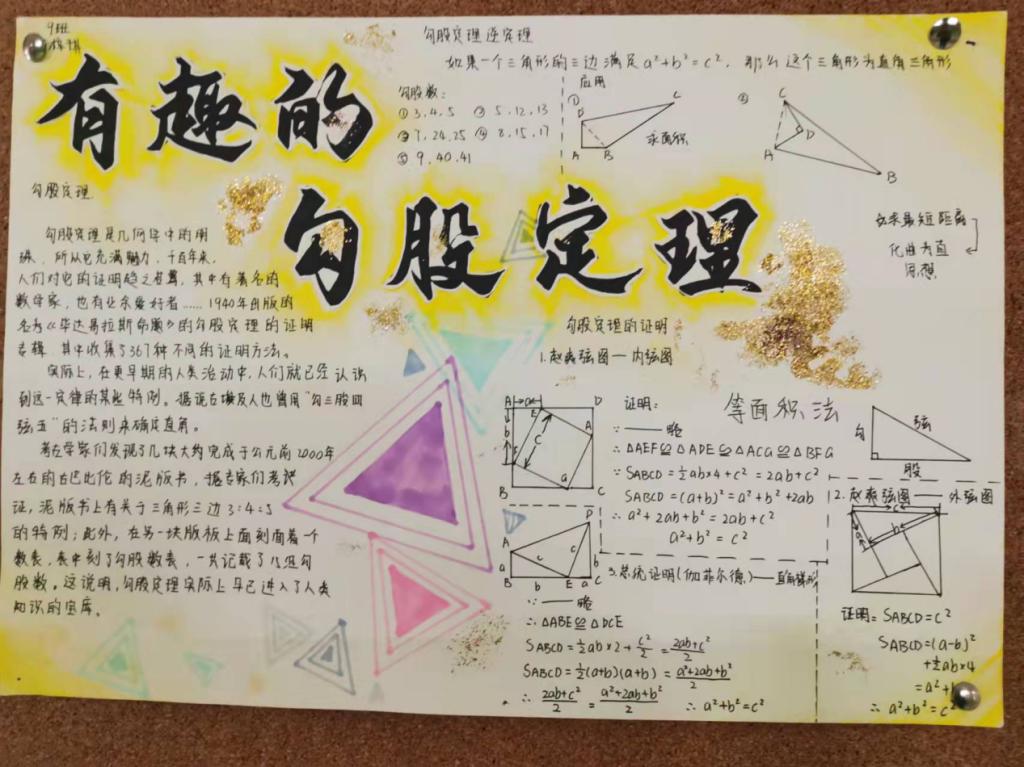 9班
有趣的
勾股定理
勾股定理逆定理
如果一个三角形的三边满足a²+b²=c², 那么这个三角形为直角三角形
勾股数:
① 3,4,5 ② 5,12,13
③ 7,24,25 ④ 8,15,17
⑤ 9,40,41
应用
①
D
C
A
B
求面积
②
C
D
A
B
立体最短距离
化曲为直
思想
勾股定理
勾股定理是几何学中的明
珠, 所以它充满魅力, 千百年来,
人们对它的证明趋之若鹜, 其中有著名的
数学家, 也有业余爱好者……1940年出版的
名为《毕达哥拉斯命题》的勾股定理的证明
专辑, 其中收集了367种不同的证明方法。
实际上, 在更早期的人类活动中, 人们就已经认识
到这一定律的某些特例。据说古埃及人也曾用"勾三股四
弦五"的法则来确定直角。
考古学家们发现了几块大约完成于公元前2000年
左右的古巴比伦的泥版书, 据专家们考证
证, 泥版书上有关于三角形三边3:4:5
的特例; 此外, 在另一块版板上面刻画着一个
数表, 表中刻了勾股数表, 一共记载了15组勾
股数。这说明, 勾股定理实际上早已进入了人类
知识的宝库。
勾股定理的证明
1.赵爽弦图一内弦图
A
a
E
D
b
c
F
A
B
a
C
证明:
等面积法
∵ —— 略
∴ △AEF≌△ADE≌△ACG≌△BFG
∵ SABCD=½ab×4+c²=2ab+c²
SABCD=(a+b)²=a²+b²+2ab
∴ a²+2ab+b²=2ab+c²
a²+b²=c²
勾
弦
股
2.赵爽弦图——外弦图
c
a
b
证明: SABCD=c²
SABCD=(a-b)²
+½ab×4
=a²+b
∴ a²+b²=c²
3.总统证明(伽菲尔德)——直角梯形
A
D
a
c
c
b
B
b
E
a
C
∵ —— 略
∴ △ABE≌△DCE
SABCD=½ab×2+c²/2=2ab+c²/2
SABCD=½(a+b)(a+b)=a²+2ab+b²/2
∴ 2ab+c²/2=a²+2ab+b²/2 ∴ a²+b²=c²